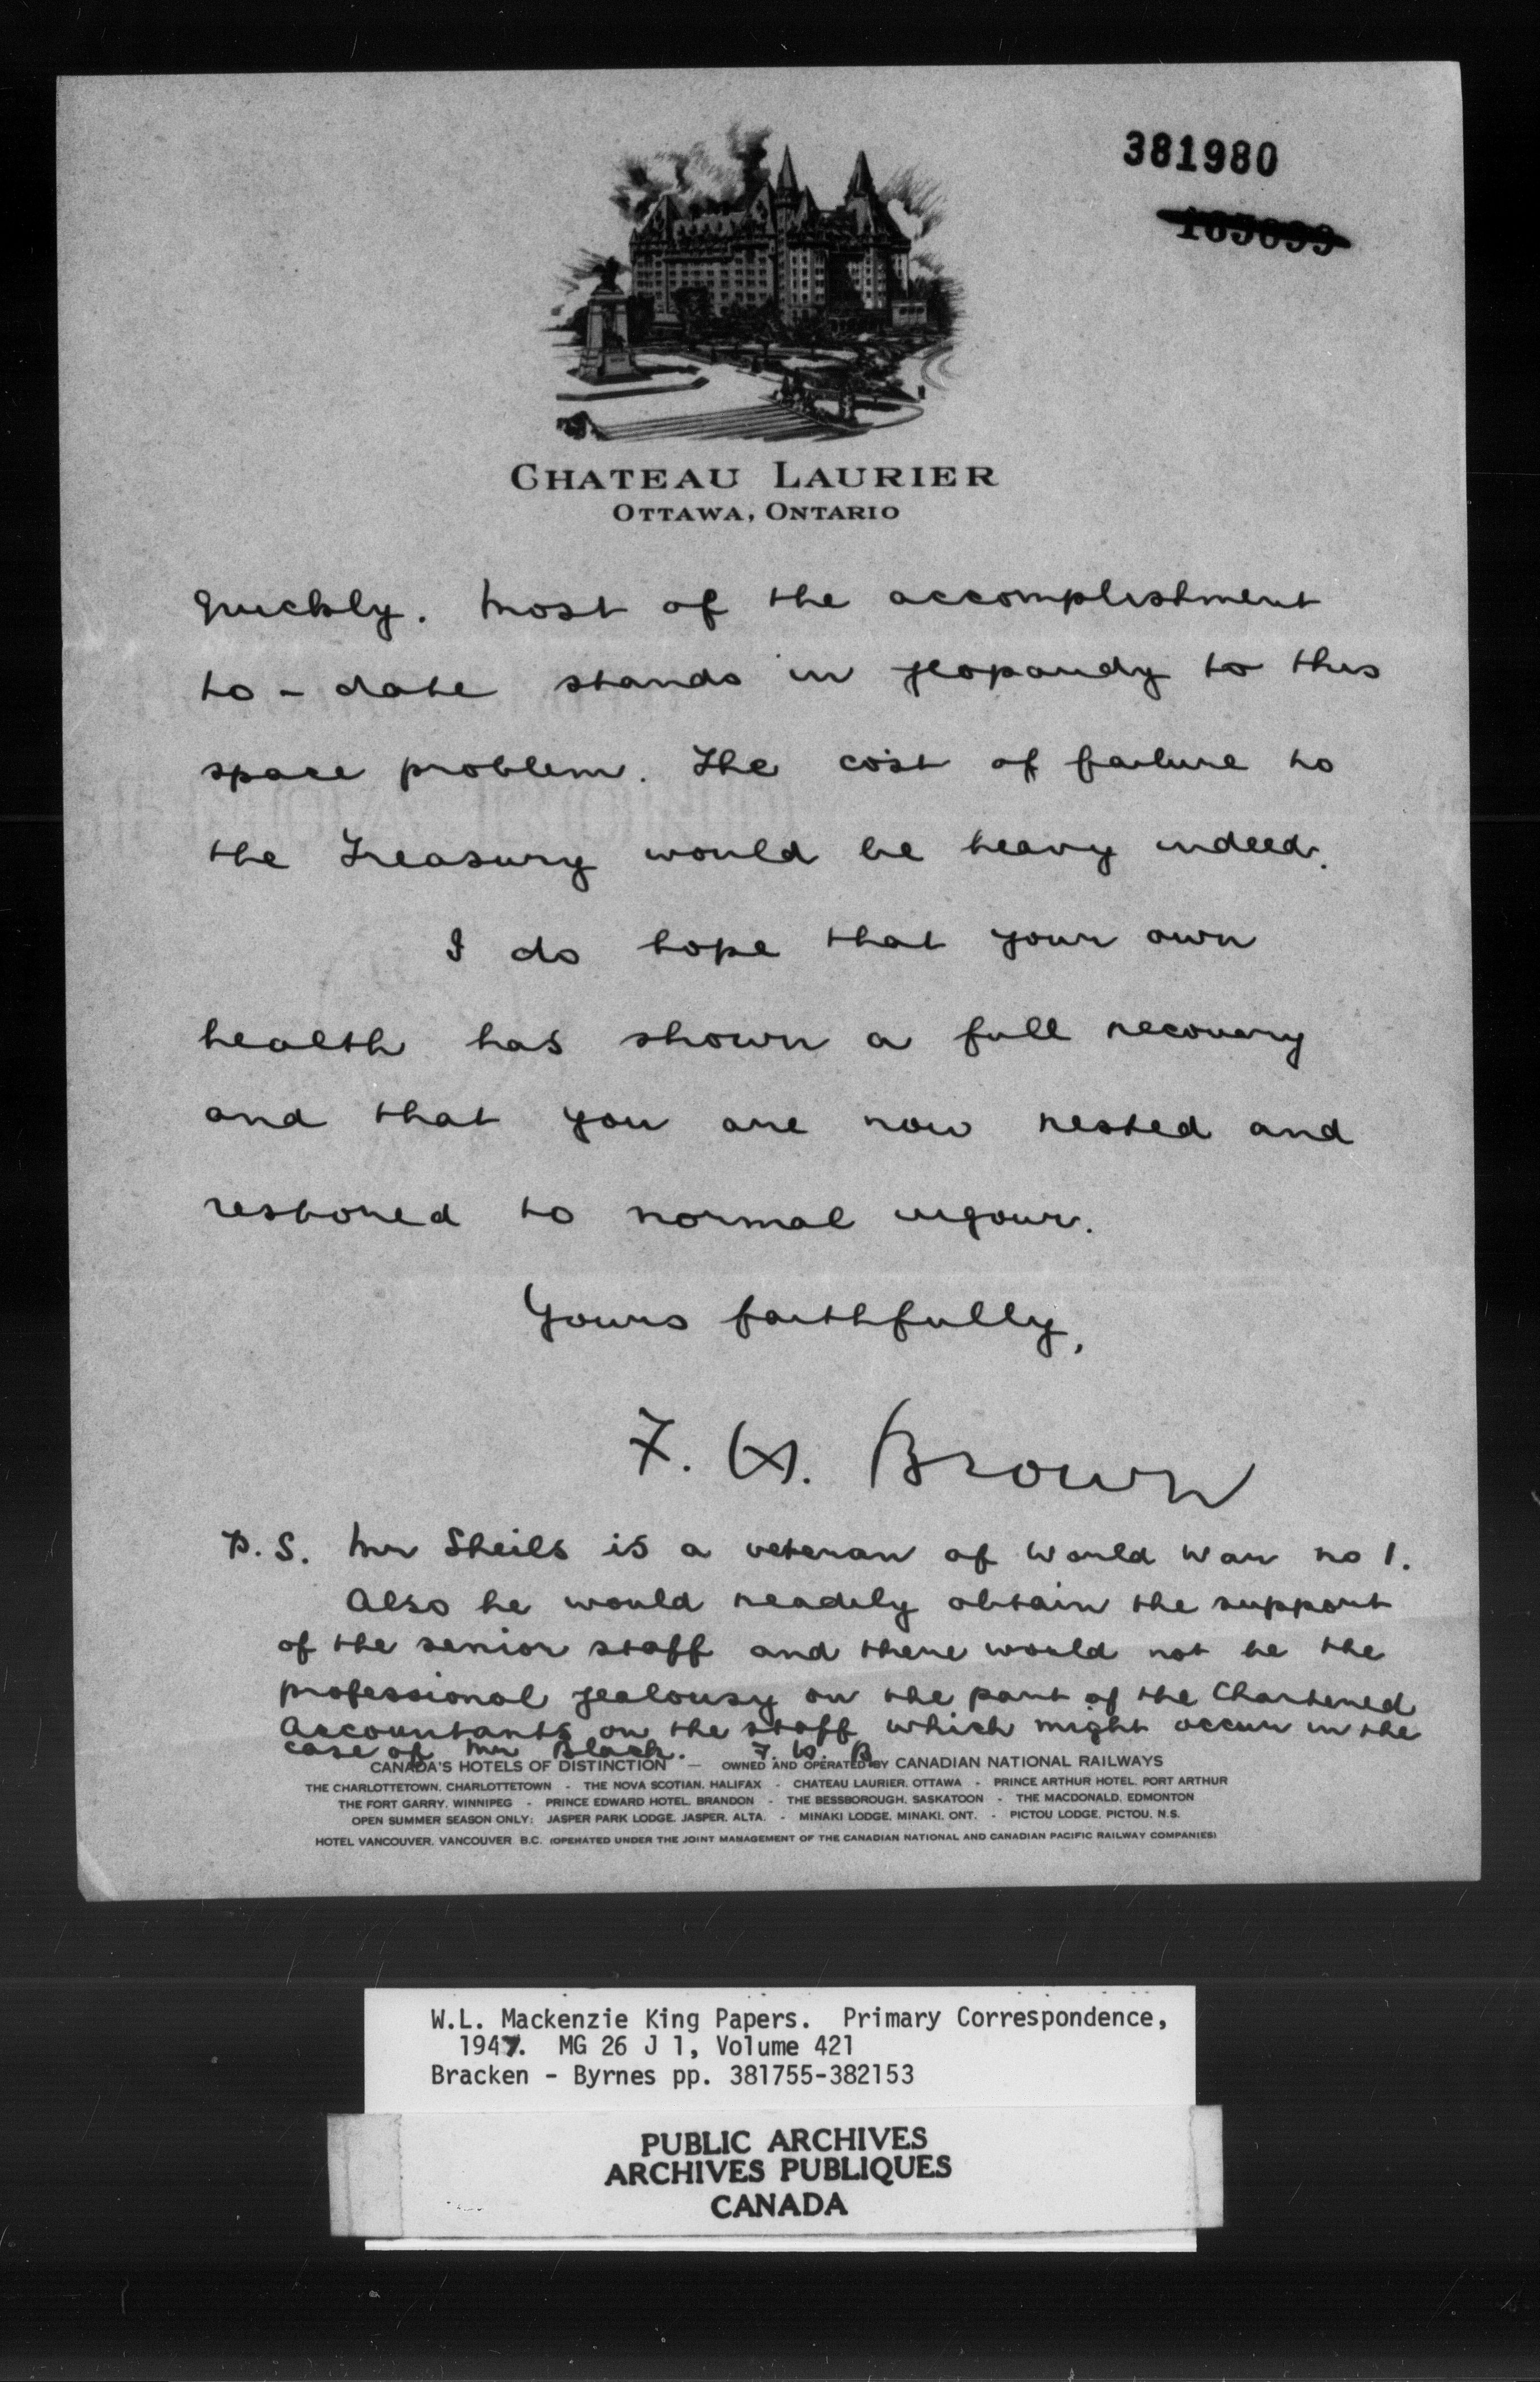 381980
CHATEAU LAURIER
OTTAWA, ONTARIO
quickly. Most of the accomplishment
to-date stands in jeopardy to this
space problem. The cost of failure to
the Treasury would be heavy indeed.
I do hope that your own
health has shown a full recovery
and that you are now rested and
restored to normal vigour.
Yours faithfully,
F. W. Brown
P.S. Mr Sheils is a veteran of World War no 1.
Also he would readily obtain the support
of the senior staff and there would not be the
professional jealousy on the part of the Chartered
Accountants on the staff which might occur in the
case of Mr Black. F. W. B.
CANADA'S HOTELS OF DISTINCTION — OWNED AND OPERATED BY CANADIAN NATIONAL RAILWAYS
THE CHARLOTTETOWN, CHARLOTTETOWN - THE NOVA SCOTIAN, HALIFAX - CHATEAU LAURIER, OTTAWA - PRINCE ARTHUR HOTEL, PORT ARTHUR
THE FORT GARRY, WINNIPEG - PRINCE EDWARD HOTEL, BRANDON - THE BESSBOROUGH, SASKATOON - THE MACDONALD, EDMONTON
OPEN SUMMER SEASON ONLY: JASPER PARK LODGE, JASPER, ALTA. - MINAKI LODGE, MINAKI, ONT. - PICTOU LODGE, PICTOU, N.S.
HOTEL VANCOUVER, VANCOUVER B.C. (OPERATED UNDER THE JOINT MANAGEMENT OF THE CANADIAN NATIONAL AND CANADIAN PACIFIC RAILWAY COMPANIES)
W.L. Mackenzie King Papers. Primary Correspondence,
1947. MG 26 J 1, Volume 421
Bracken - Byrnes pp. 381755-382153
PUBLIC ARCHIVES
ARCHIVES PUBLIQUES
CANADA